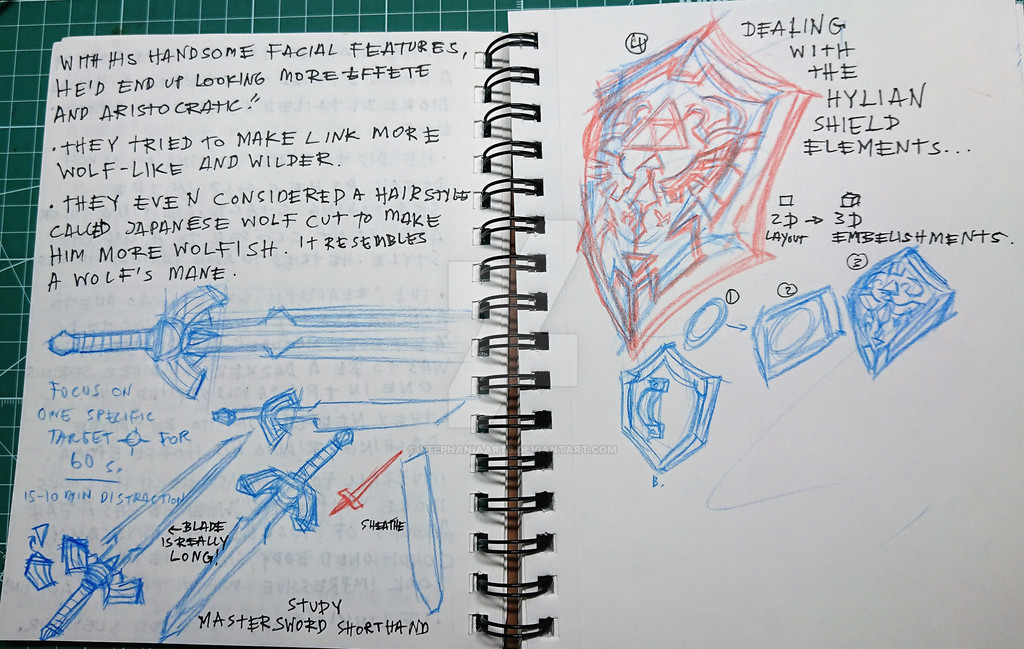 WITH HIS HANDSOME FACIAL FEATURES,
HE'D END UP LOOKING MORE EFFETE
AND ARISTOCRATIC."
· THEY TRIED TO MAKE LINK MORE
WOLF-LIKE AND WILDER.
· THEY EVEN CONSIDERED A HAIRSTYLE
CALLED JAPANESE WOLF CUT TO MAKE
HIM MORE WOLFISH. IT RESEMBLES
A WOLF'S MANE.
FOCUS ON
ONE SPECIFIC
TARGET FOR
60 s.
15-10 MIN DISTRACTION
← BLADE
IS REALLY
LONG!
SHEATHE
STUDY
MASTERSWORD SHORTHAND
4
DEALING
WITH
THE
HYLIAN
SHIELD
ELEMENTS...
2D → 3D
LAYOUT EMBELISHMENTS.
1
2
3
B.
STEPHANIAART.DEVIANTART.COM